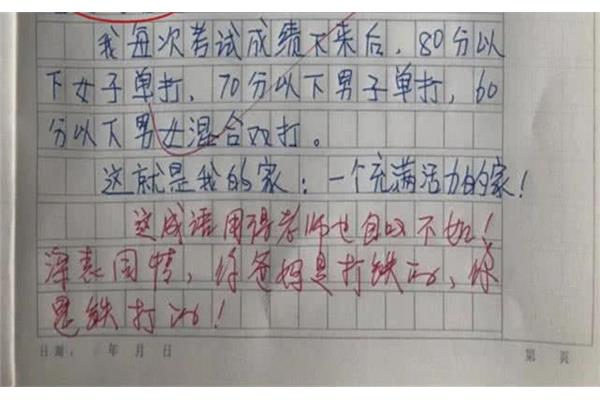 我每次考试成绩下来后，80分以
下女子单打，70分以下男子单打，60
分以下男女混合双打。
这就是我的家：一个充满活力的家！
这成语用得老师也自叹不如！
深表同情，你爸妈是打铁的，你
是铁打的！
日期： 年 月 日
第 页